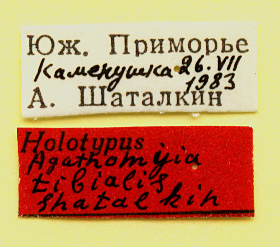 Юж. Приморье
Каменушка 26.VII
1983
А. Шаталкин
Holotypus
Agathomyia
tibialis
Shatalkin